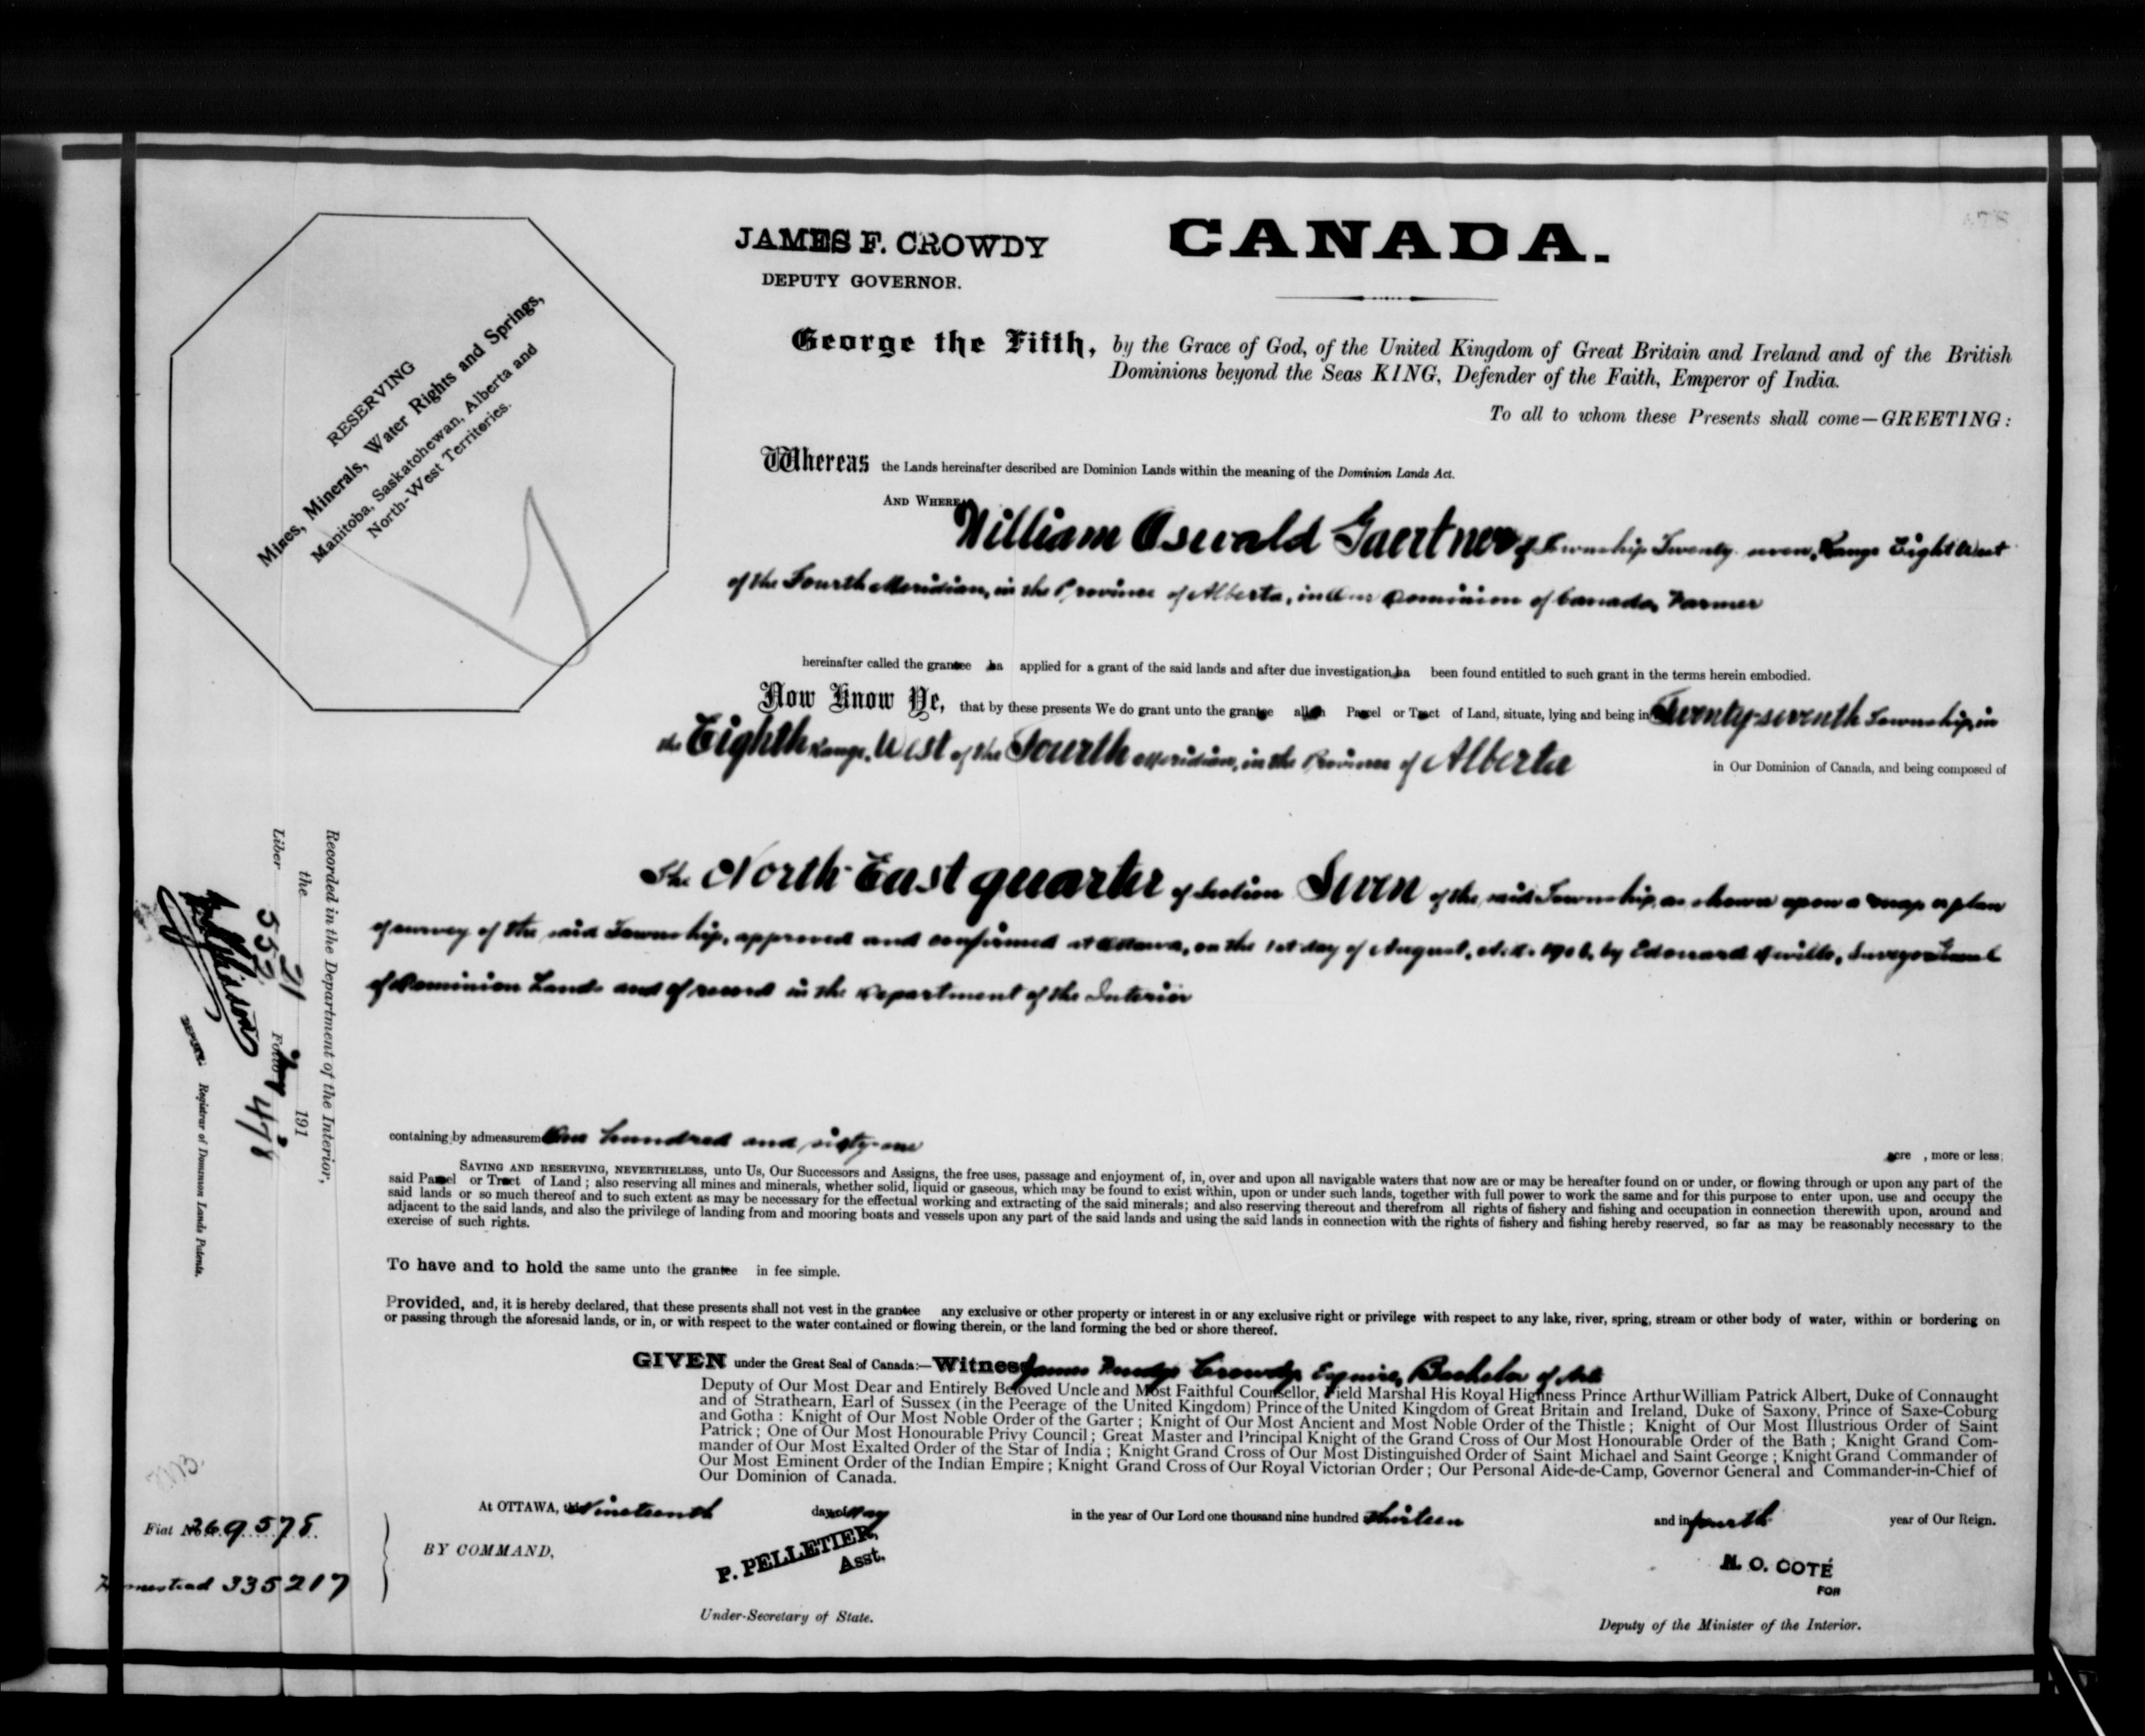 JAMES F. CROWDY
DEPUTY GOVERNOR.
CANADA.
RESERVING
Mines, Minerals, Water Rights and Springs,
Manitoba, Saskatchewan, Alberta and
North-West Territories.
George the Fifth, by the Grace of God, of the United Kingdom of Great Britain and Ireland and of the British
Dominions beyond the Seas KING, Defender of the Faith, Emperor of India.
To all to whom these Presents shall come—GREETING:
Whereas the Lands hereinafter described are Dominion Lands within the meaning of the Dominion Lands Act.
AND WHEREAS
William Oswald Gaertner of Township Twenty-seven, Range Eight West
of the Fourth Meridian, in the Province of Alberta, in Our Dominion of Canada, Farmer
hereinafter called the grantee ha applied for a grant of the said lands and after due investigation ha been found entitled to such grant in the terms herein embodied.
Now Know Ye, that by these presents We do grant unto the grantee all Parcel or Tract of Land, situate, lying and being in Twenty-seventh Township, in
the Eighth Range, West of the Fourth Meridian, in the Province of Alberta in Our Dominion of Canada, and being composed of
The North-East quarter of Section Seven of the said Township, as shown upon a map or plan
of survey of the said Township, approved and confirmed at Ottawa, on the 1st day of August, A.D. 1906, by Edouard Deville, Surveyor General
of Dominion Lands and of record in the Department of the Interior
Recorded in the Department of the Interior,
the 21 191
Liber 552 Folio 478
DEPUTY Registrar of Dominion Lands Patents.
containing by admeasurement One hundred and sixty-one acre , more or less;
SAVING AND RESERVING, NEVERTHELESS, unto Us, Our Successors and Assigns, the free uses, passage and enjoyment of, in, over and upon all navigable waters that now are or may be hereafter found on or under, or flowing through or upon any part of the
said Parcel or Tract of Land ; also reserving all mines and minerals, whether solid, liquid or gaseous, which may be found to exist within, upon or under such lands, together with full power to work the same and for this purpose to enter upon, use and occupy the
said lands or so much thereof and to such extent as may be necessary for the effectual working and extracting of the said minerals; and also reserving thereout and therefrom all rights of fishery and fishing and occupation in connection therewith upon, around and
adjacent to the said lands, and also the privilege of landing from and mooring boats and vessels upon any part of the said lands and using the said lands in connection with the rights of fishery and fishing hereby reserved, so far as may be reasonably necessary to the
exercise of such rights.
To have and to hold the same unto the grantee in fee simple.
Provided, and, it is hereby declared, that these presents shall not vest in the grantee any exclusive or other property or interest in or any exclusive right or privilege with respect to any lake, river, spring, stream or other body of water, within or bordering on
or passing through the aforesaid lands, or in, or with respect to the water contained or flowing therein, or the land forming the bed or shore thereof.
GIVEN under the Great Seal of Canada:—Witness James Crowdy Esquire, Bachelor of Arts
Deputy of Our Most Dear and Entirely Beloved Uncle and Most Faithful Counsellor, Field Marshal His Royal Highness Prince Arthur William Patrick Albert, Duke of Connaught
and of Strathearn, Earl of Sussex (in the Peerage of the United Kingdom) Prince of the United Kingdom of Great Britain and Ireland, Duke of Saxony, Prince of Saxe-Coburg
and Gotha : Knight of Our Most Noble Order of the Garter ; Knight of Our Most Ancient and Most Noble Order of the Thistle ; Knight of Our Most Illustrious Order of Saint
Patrick ; One of Our Most Honourable Privy Council ; Great Master and Principal Knight of the Grand Cross of Our Most Honourable Order of the Bath ; Knight Grand Com-
mander of Our Most Exalted Order of the Star of India ; Knight Grand Cross of Our Most Distinguished Order of Saint Michael and Saint George ; Knight Grand Commander of
Our Most Eminent Order of the Indian Empire ; Knight Grand Cross of Our Royal Victorian Order ; Our Personal Aide-de-Camp, Governor General and Commander-in-Chief of
Our Dominion of Canada.
At OTTAWA, this Nineteenth day of May in the year of Our Lord one thousand nine hundred Thirteen and in fourth year of Our Reign.
Fiat No 269575
BY COMMAND,
P. PELLETIER,
Asst.
N. O. COTÉ
FOR
Homestead 335217
Under-Secretary of State.
Deputy of the Minister of the Interior.